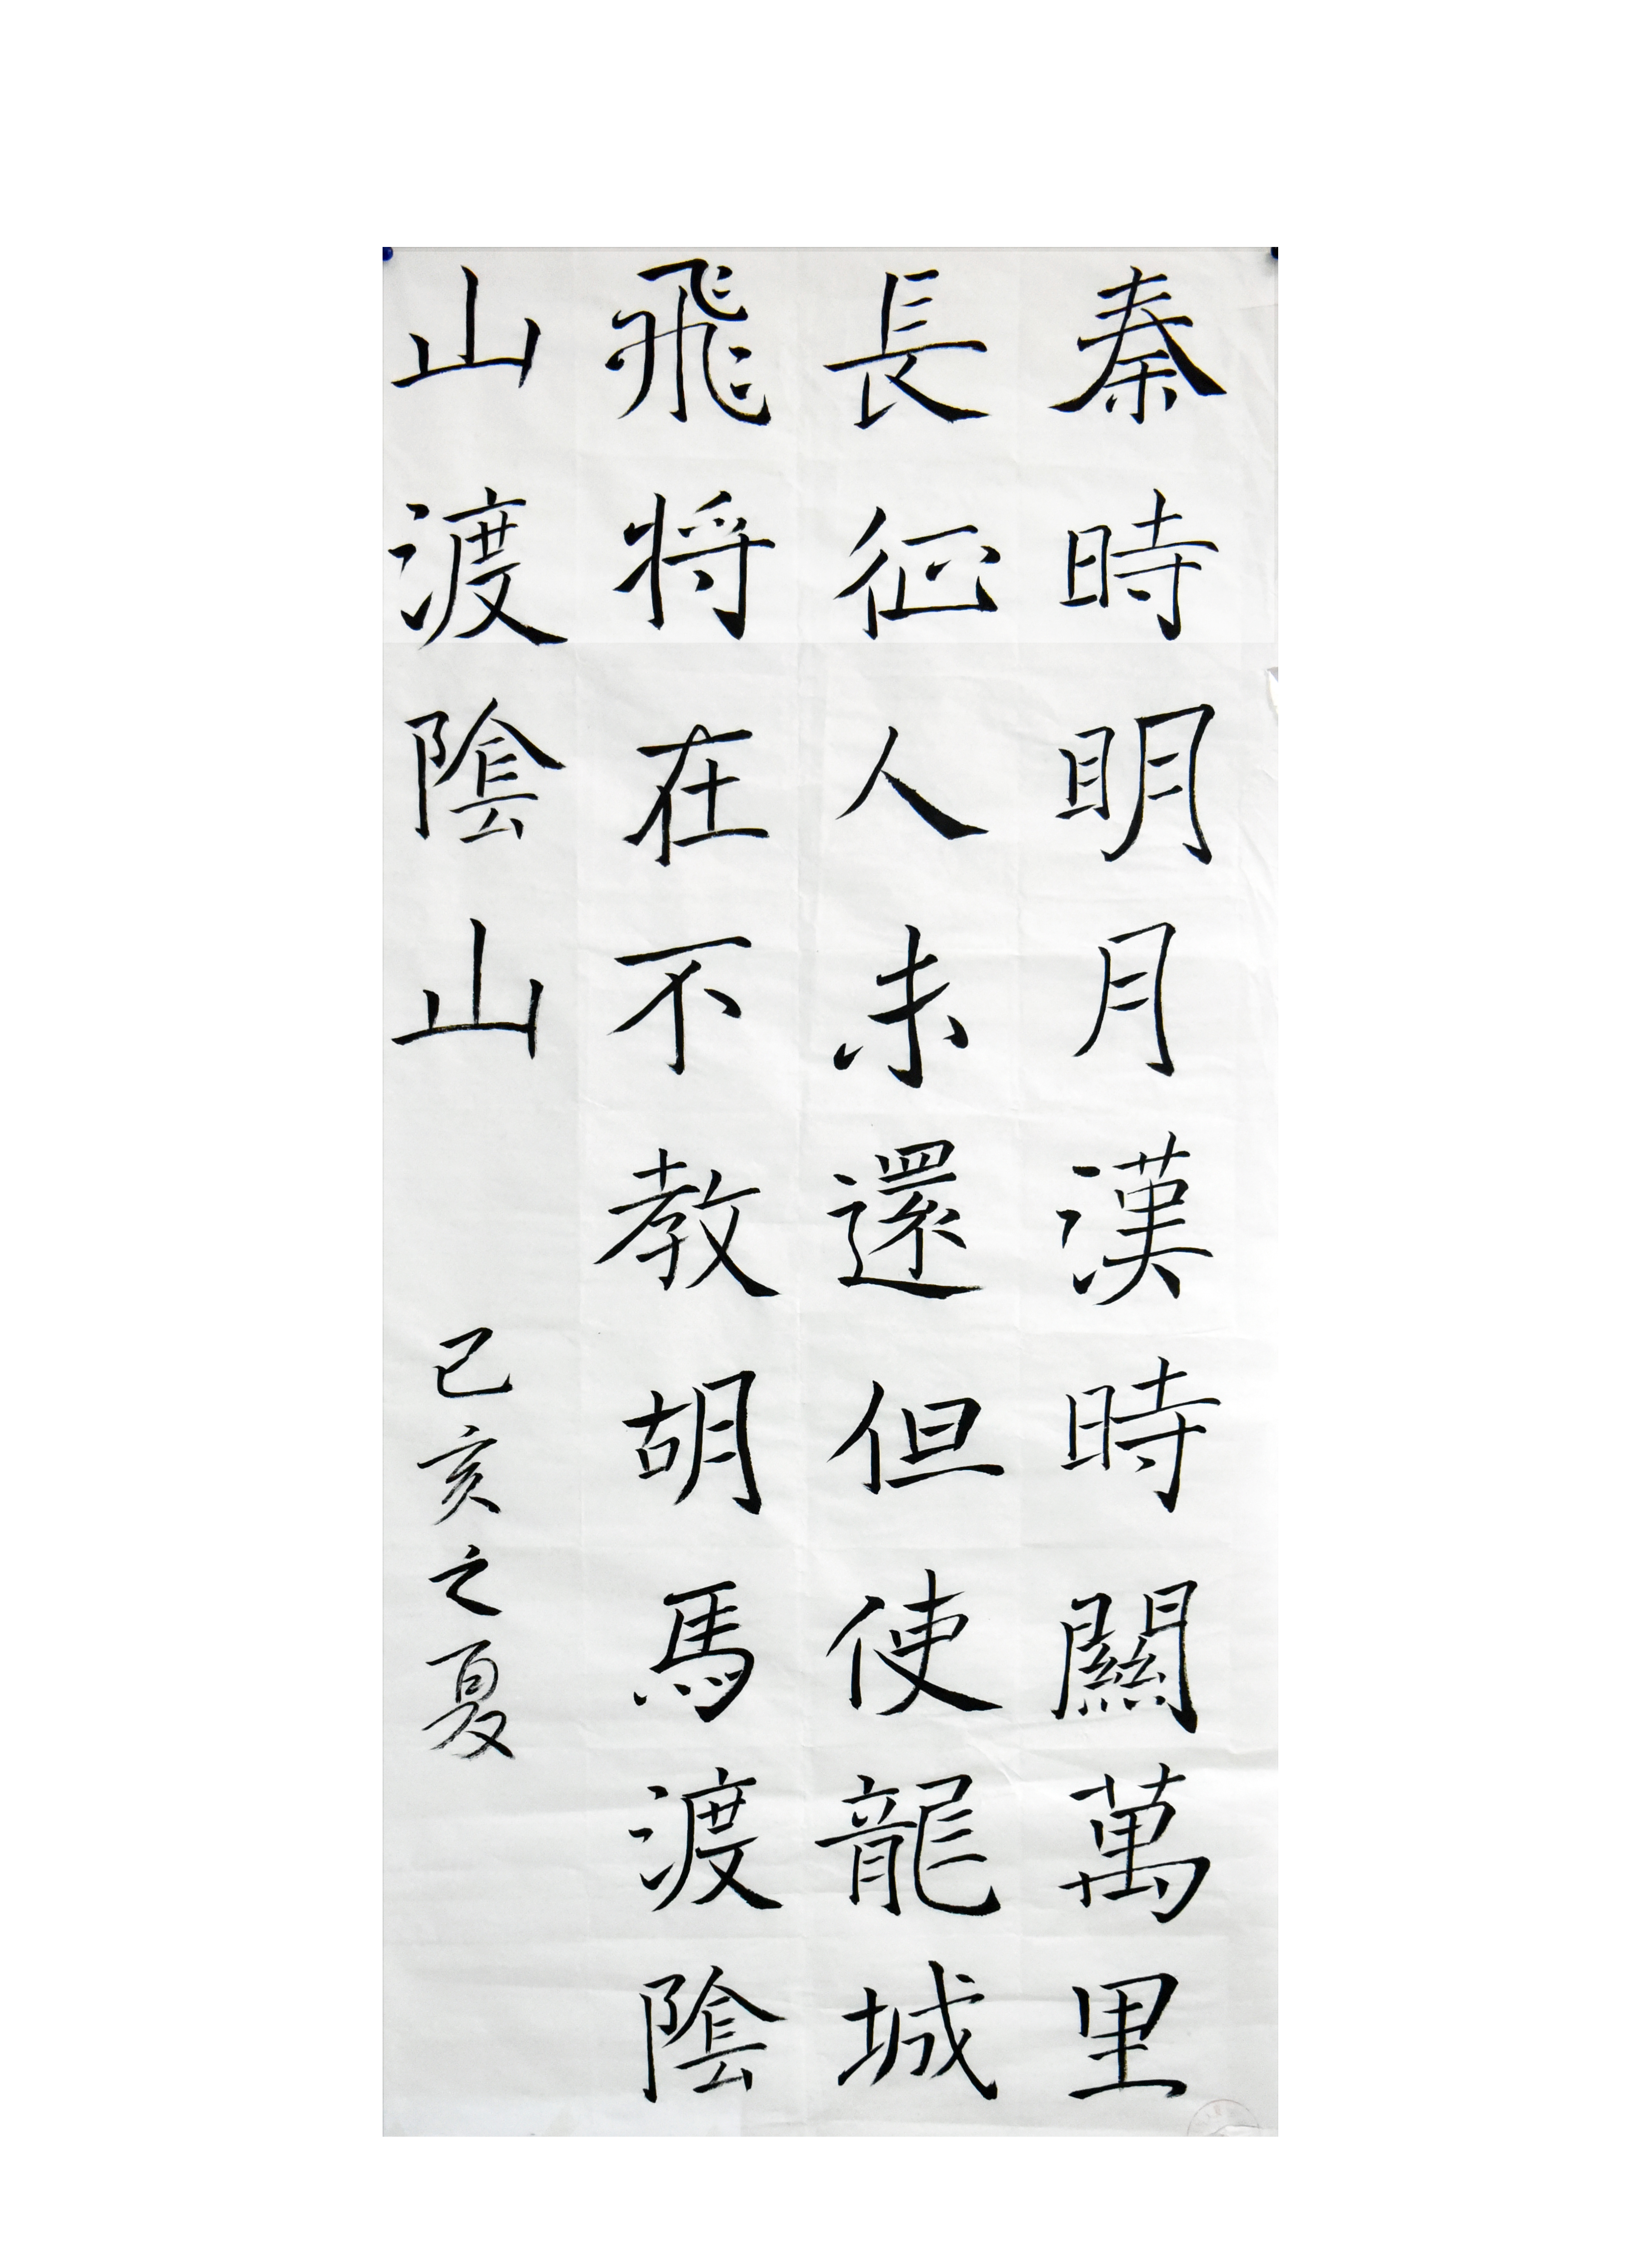 秦時明月漢時關萬里
長征人未還但使龍城
飛将在不教胡馬渡陰
山渡陰山
己亥之夏